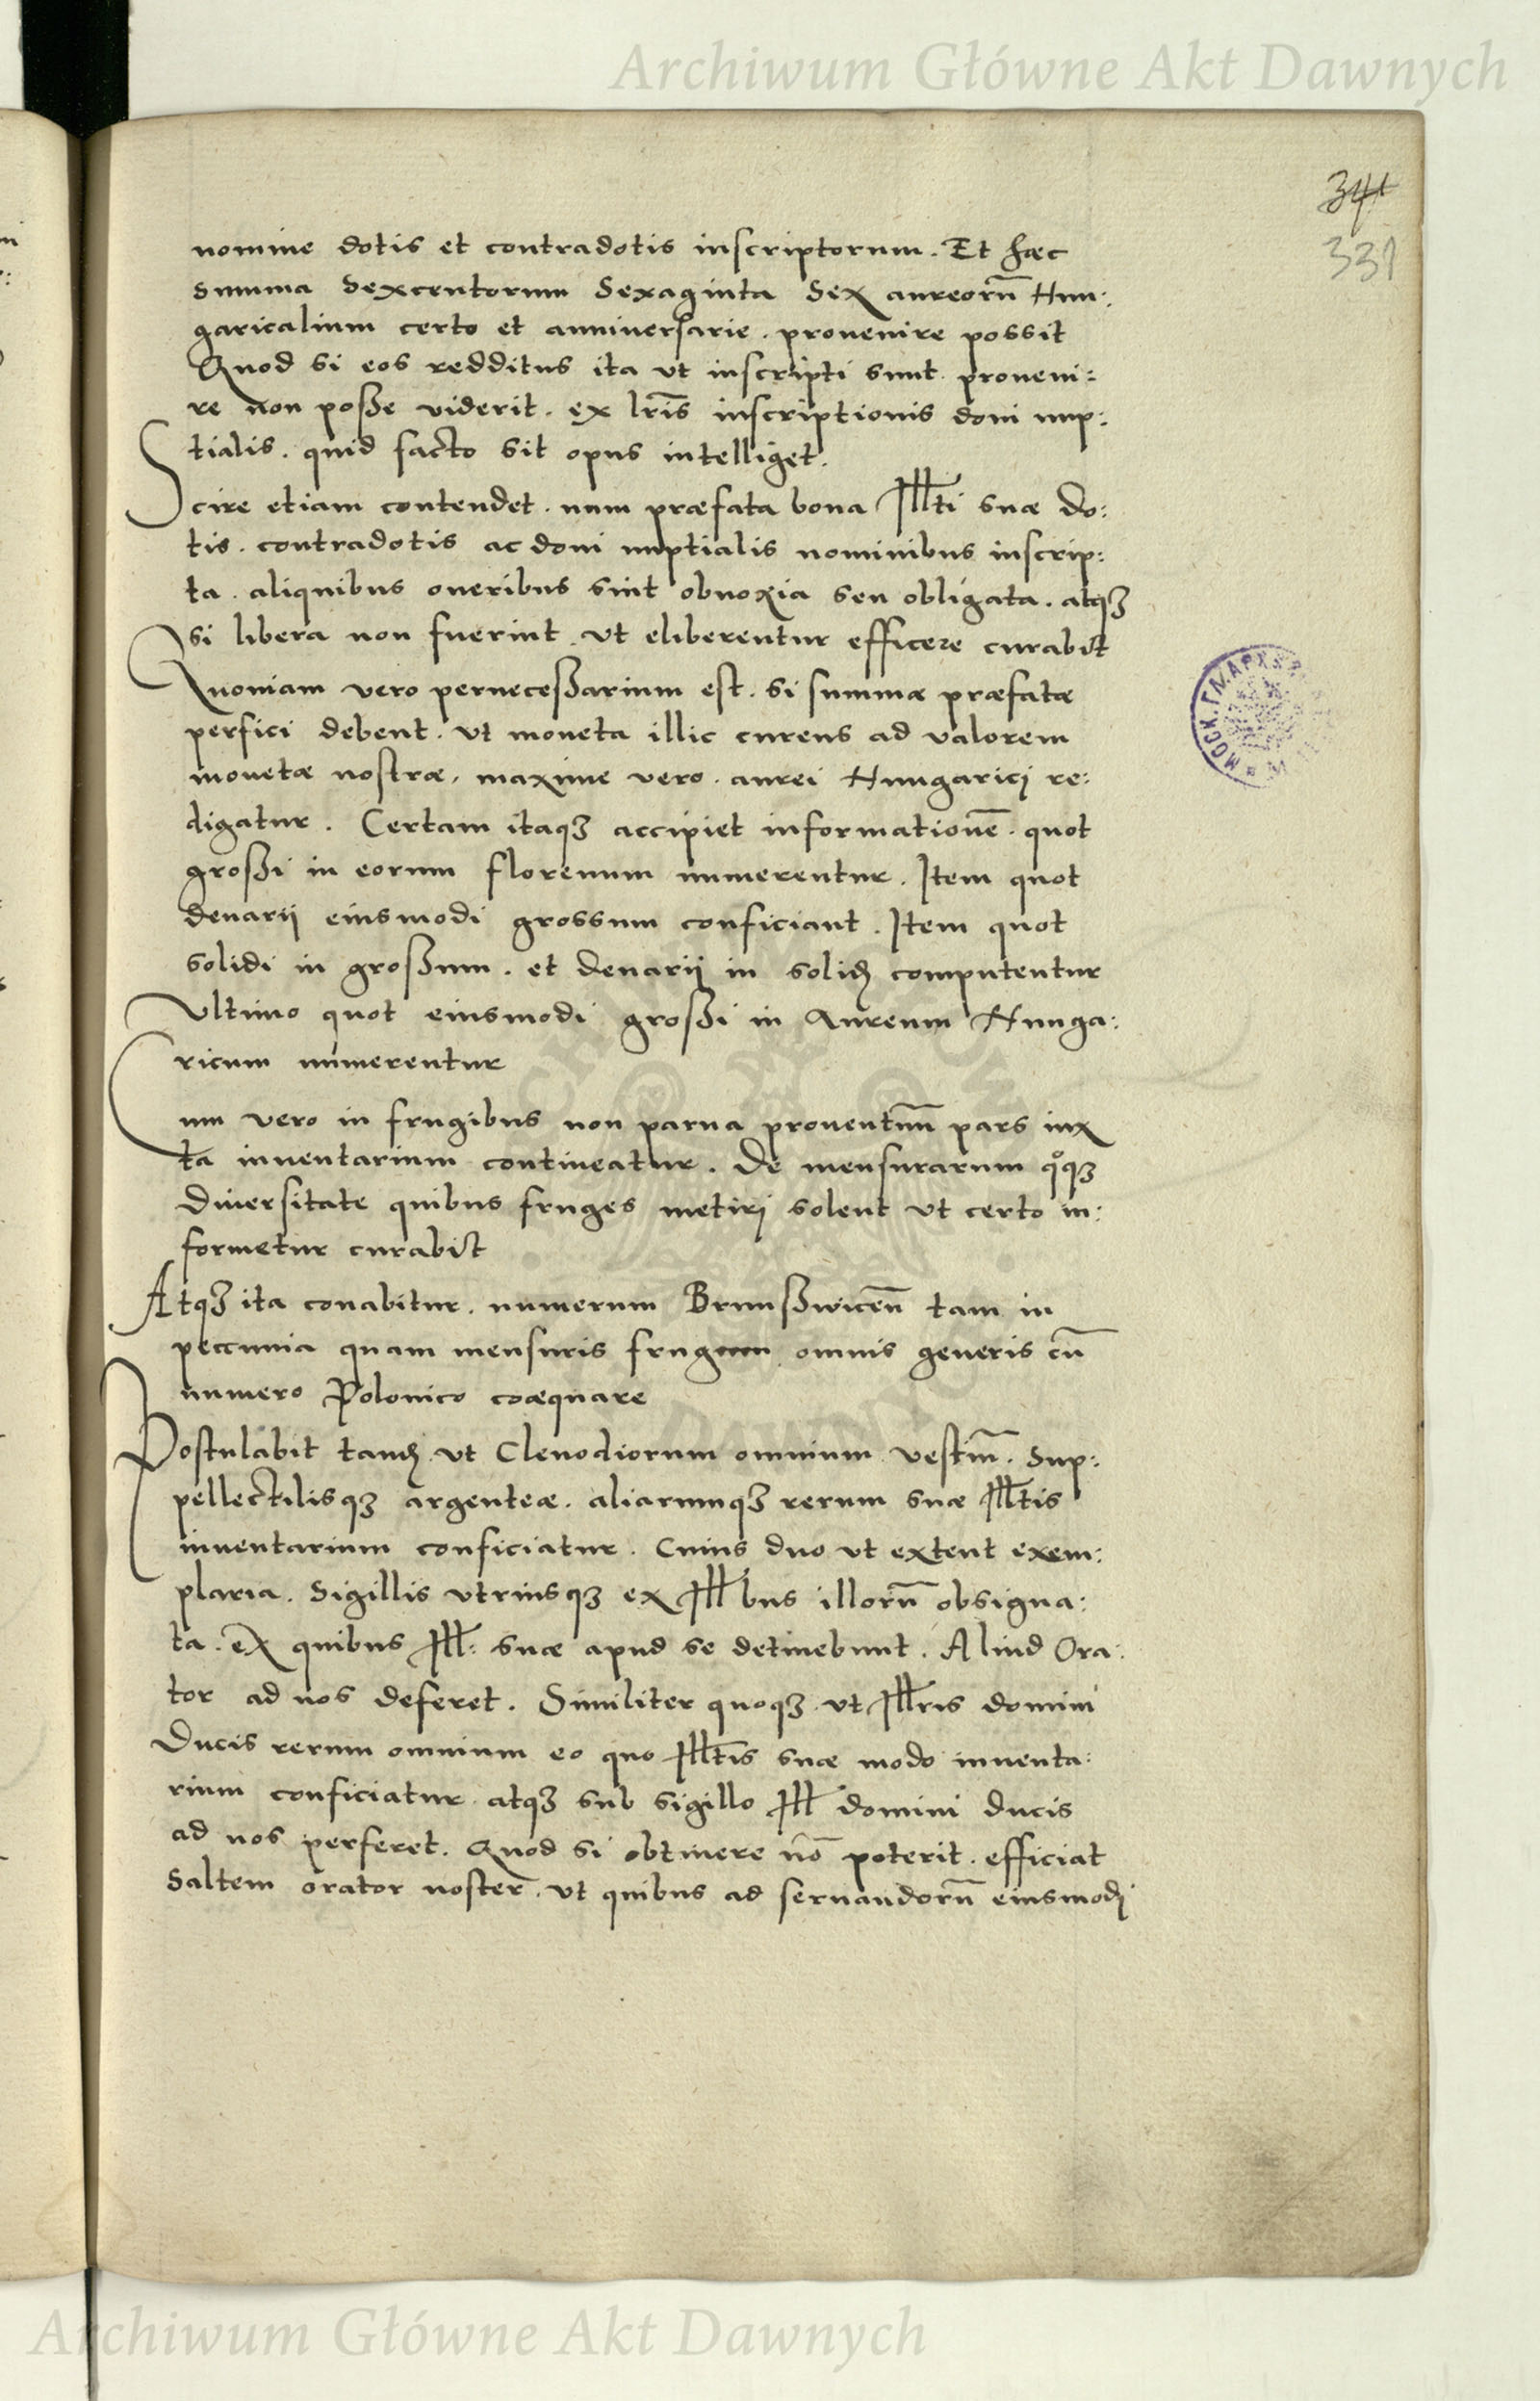 Archiwum Główne Akt Dawnych
341
331
nomine dotis et contradotis inscriptorum. Et hæc
summa sexcentorum sexaginta sex aureorũ Hun:
garicalium certo et anniversarie. provenire possit
Quod si eos redditus ita ut inscripti sunt proveni:
re non poße viderit. ex lris inscriptionis doni nup:
tialis. quid facto sit opus intelliget.
Scire etiam contendet. num præfata bona Illti suæ do:
tis. contradotis ac doni nuptialis nominibus inscrip:
ta. aliquibus oneribus sint obnoxia seu obligata. atqꝫ
si libera non fuerint. ut eliberentur efficere curabit
Quoniam vero perneceßarium est. si summæ præfatæ
perfici debent. ut moneta illic curens ad valorem
monetæ nostræ. maxime vero. aurei Hungarici re:
digatur. Certam itaqꝫ accipiet informationẽ. quot
großi in eorum florenum numerentur. Item quot
denarij eiusmodi grossum conficiant. Item quot
solidi in großum. et denarij in solid computentur
Ultimo quot eiusmodi großi in Aureum Hunga:
ricum numerentur
Cum vero in frugibus non parva proventuũ pars iux
ta inventarium contineatur. De mensurarum qͦqꝫ
diversitate quibus fruges metiri solent ut certo in:
formetur curabit
Atqꝫ ita conabitur. numerum Brunßwiceñ tam in
peccunia quam mensuris frugum omnis generis cũ
numero Polonico coæquare
Postulabit tand ut Clenodiorum omnium vestiũ. Sup:
pellectilisqꝫ argenteæ. aliarumqꝫ rerum suæ Illtis
inventarium conficiatur. Cuius duo ut extent exem:
plaria. Sigillis utriusqꝫ ex Ill bus illorũ obsigna:
ta. ex quibus Ill: suæ apud se detinebunt. Aliud Ora:
tor ad nos deferet. Similiter quoqꝫ ut Illris domini
Ducis rerum omnium eo quo Illtis suæ modo inventa:
rium conficiatur atqꝫ sub sigillo Ill domini ducis
ad nos perferet. Quod si obtinere nõ poterit. efficiat
Saltem orator noster. ut quibus ad servandorũ eiusmodi
Archiwum Główne Akt Dawnych